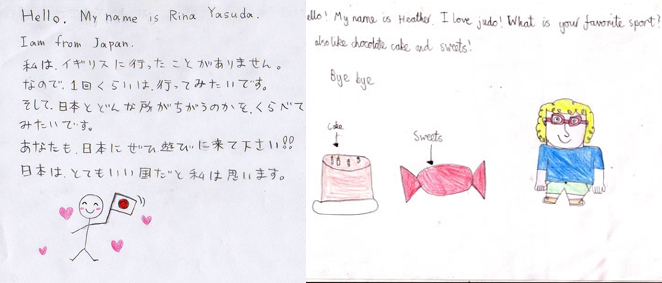 Hello. My name is Rina Yasuda.
I am from Japan.
私は、イギリスに行ったことがありません。
なので、1回くらいは、行ってみたいです。
そして、日本とどんな所がちがうのかを、くらべて
みたいです。
あなたも、日本にぜひ遊びに来て下さい!!
日本は、とてもいい国だと私は思います。
ello! My name is Heather. I love judo! What is your favorite sport?
also like chocolate cake and sweets!
Bye bye
Cake
Sweets